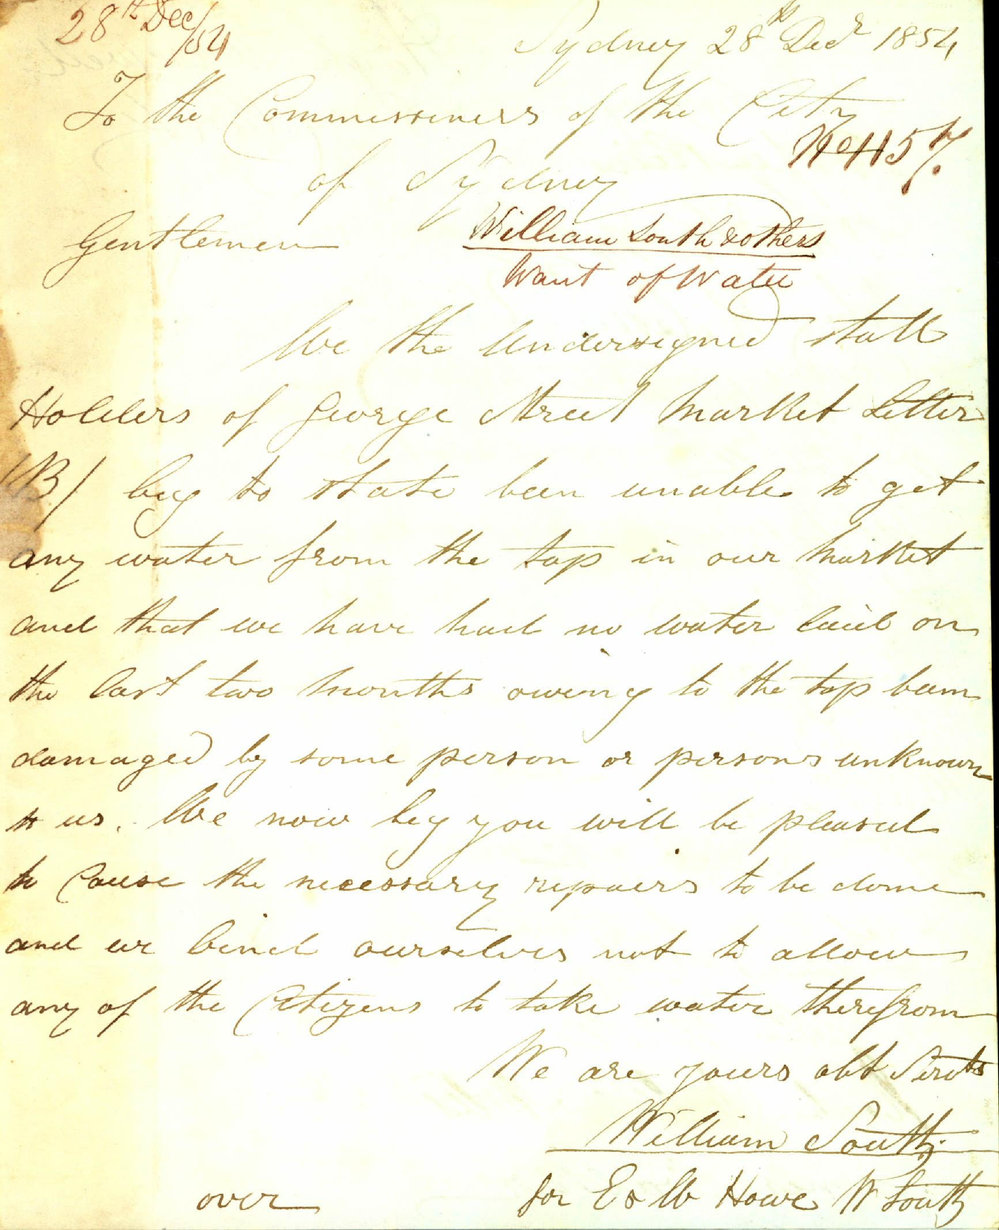 28th Dec/54
Sydney 28th Decr 1854
To the Commissioners of the City
No 1157.
of Sydney
Gentlemen
William South & others
Want of Water
We the Undersigned stall
Holders of George Street Market Letter
(B) beg to state been unable to get
any water from the tap in our Market
and that we have had no water laid on
the last two Months owing to the tap beain
damaged by some person or persons unknown
to us. We now beg you will be pleased
to Cause the necessary repairs to be done
and we bind ourselves not to allow
any of the Citizens to take water therefrom
We are yours obt Servts
William South
for E & W Howe W South
over